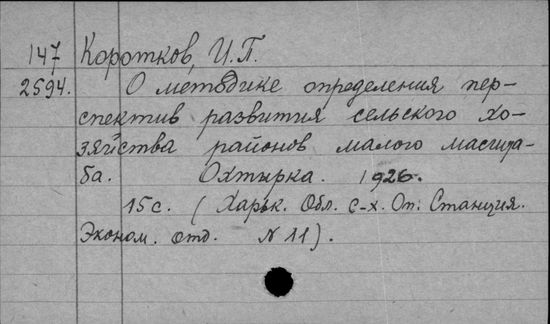 147 Коротков, И.П.
2594. О методике определения пер-
спектив развития сельского хо-
зяйства районов малого масшта-
ба. Охтырка. 1926.
15с. (Харьк. Обл. С-х. Оп. Станция.
Эконом. отд. N 11).